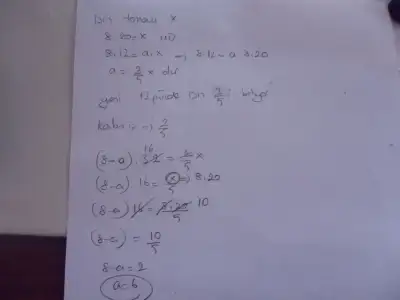 Din tamamı x
8.20=x
8.12=a.x → 8.12=a 8.20
a=3/5 x dir
yani 12 günde işin 3/5 i bitiyor
kalan → 2/5
(8-a) 16 = 2/5 x
(8-a) 16 = x/5 → 8.20
(8-a) 16 = 8.20/5 10
(8-a) = 10/5
8-a=2
a=6